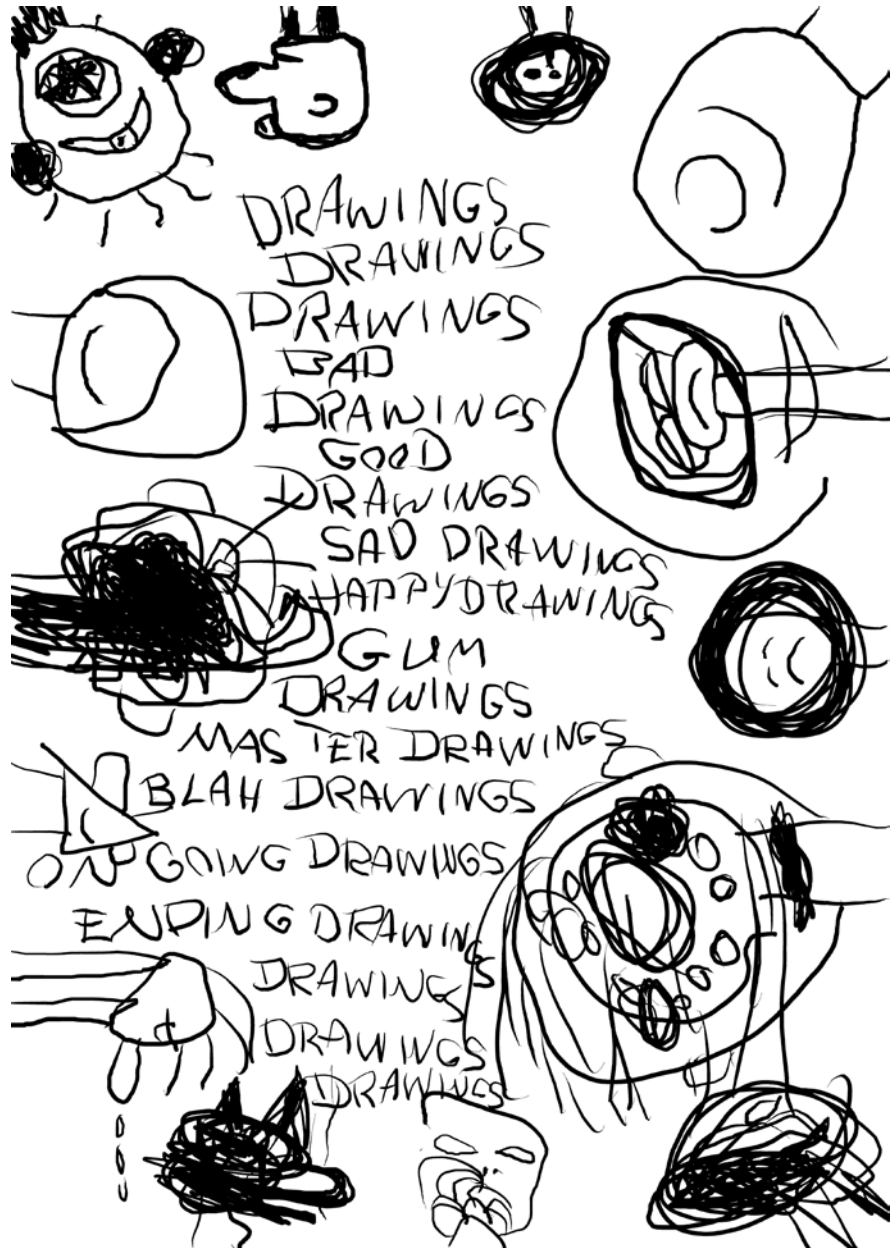 DRAWINGS
DRAWINGS
DRAWINGS
BAD
DRAWINGS
GOOD
DRAWINGS
SAD DRAWINGS
HAPPY DRAWINGS
GUM
DRAWINGS
MASTER DRAWINGS
BLAH DRAWINGS
ON GOING DRAWINGS
ENDING DRAWINGS
DRAWINGS
DRAWINGS
DRAWINGS